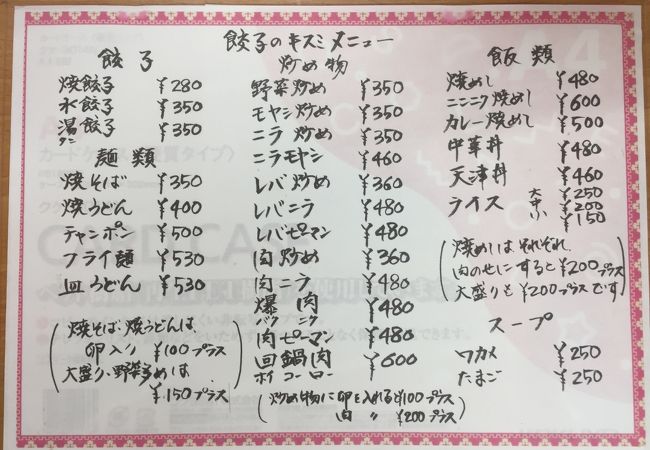 餃子のキスミメニュー
餃子
焼餃子 ¥280
水餃子 ¥350
湯餃子 ¥350
タン
麺類
焼そば ¥350
焼うどん ¥400
チャンポン ¥500
フライ麺 ¥530
皿うどん ¥530
(焼そば・焼うどんは、
卵入り ¥100プラス
大盛り・野菜多めは
¥150プラス)
炒め物
野菜炒め ¥350
モヤシ炒め ¥350
ニラ炒め ¥350
ニラモヤシ ¥460
レバ炒め ¥360
レバニラ ¥480
レバピーマン ¥480
肉炒め ¥360
肉ニラ ¥480
爆肉 ¥480
バクニク
肉ピーマン ¥480
回鍋肉 ¥600
ホイコーロー
(炒め物に卵を入れると¥100プラス
肉 〃 ¥200プラス)
飯類
焼めし ¥480
ニンニク焼めし ¥600
カレー焼めし ¥500
中華丼 ¥480
天津丼 ¥460
ライス 大 ¥250
中 ¥200
小 ¥150
(焼めしはそれぞれ、
肉のせにすると¥200プラス
大盛りも¥200プラスです)
スープ
ワカメ ¥250
たまご ¥250